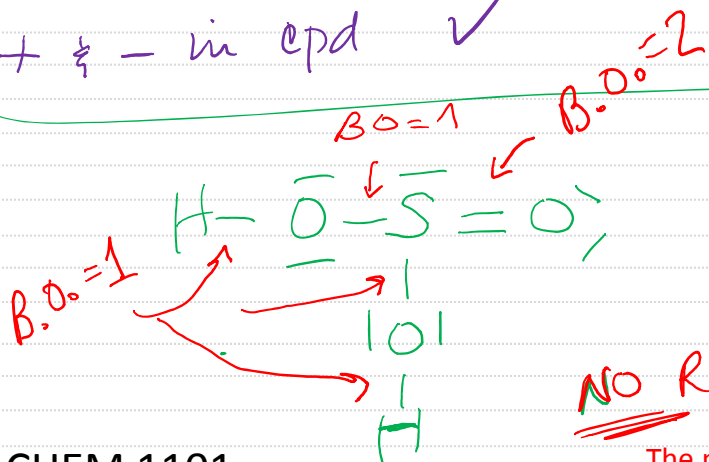 + & - in cpd ✓
B.O.=2
BO=1
H-O-S=O
B.O.=1
|O|
H
NO R
CHEM 1101
The